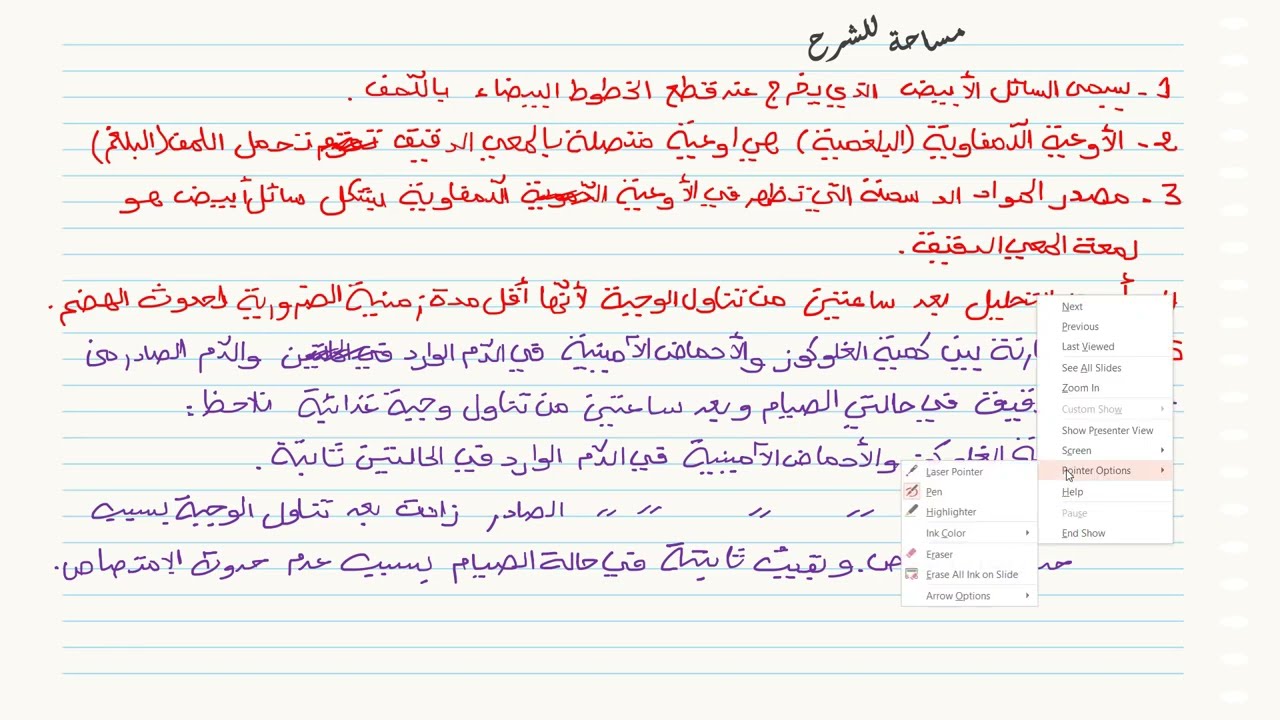 مساحة للشرح
1 - يسمى السائل الأبيض الذي يخرج عند قطع الخطوط البيضاء بالمف .
2 - الأوعية اللمفاوية (البلغمية) هي اوعية متصلة بالمعي الدقيق تحمل اللمف (البلغم)
3 - مصدر المواد الدسمة التي تظهر في الأوعية اللمفاوية ليتشكل سائل أبيض هو
لمعة المعي الدقيقة .
التحليل بعد ساعتين من تناول الوجبة لأنها أقل مدة زمنية الضرورية لحدوث الهضم .
بين كمية الغلوكوز والأحماض الآمينية في الدم الوارد والدم الصادر من
في حالتي الصيام وبعد ساعتين من تناول وجبة غذائية نلاحظ :
والأحماض الآمينية في الدم الوارد في الحالتين ثابتة .
" " " " الصادر زادت بعد تناول الوجبة بسبب
وبقيت ثابتة في حالة الصيام بسبب عدم حدوث الامتصاص .
Next
Previous
Last Viewed
See All Slides
Zoom In
Custom Show
Show Presenter View
Screen
Pointer Options
Help
Pause
End Show
Laser Pointer
Pen
Highlighter
Ink Color
Eraser
Erase All Ink on Slide
Arrow Options